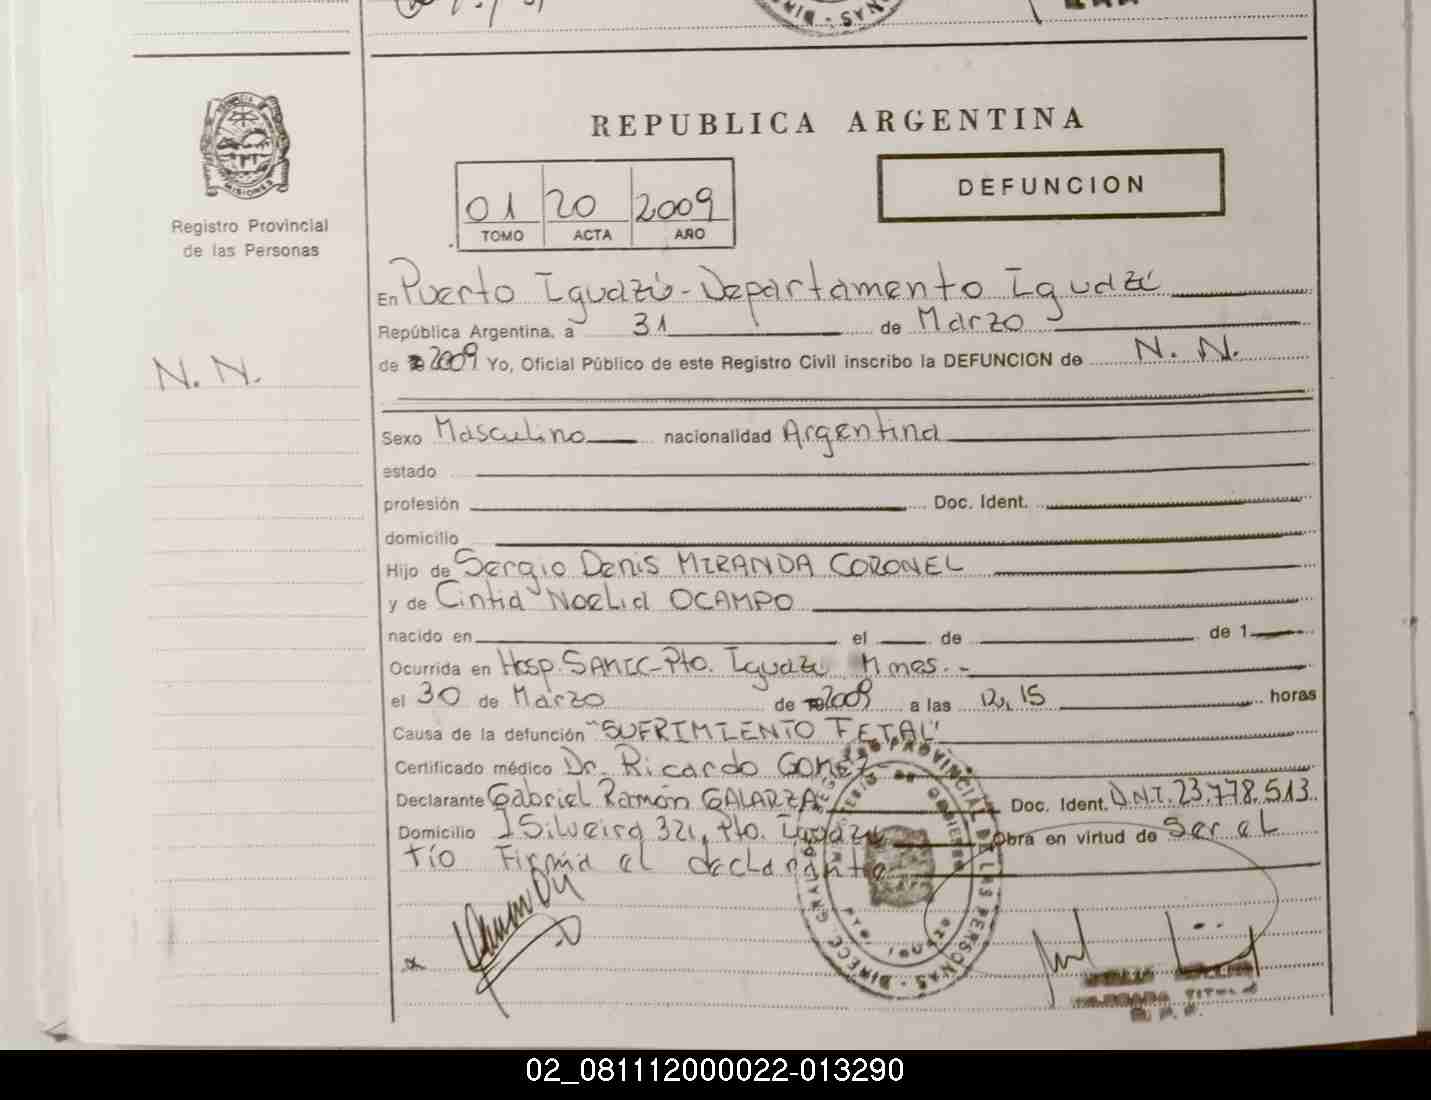 REPUBLICA ARGENTINA
DEFUNCION
01 20 2009
TOMO ACTA AÑO
Registro Provincial
de las Personas
MISIONES
N. N.
En Puerto Iguazú - Departamento Iguazú
República Argentina, a 31 de Marzo
de 2009 Yo, Oficial Público de este Registro Civil inscribo la DEFUNCION de N. N.
Sexo Masculino nacionalidad Argentina
estado
profesión Doc. Ident.
domicilio
Hijo de Sergio Denis MIRANDA CORONEL
y de Cintia Noelia OCAMPO
nacido en el de de 1
Ocurrida en Hosp. SAMIC - Pto. Iguazú Mnes. -
el 30 de Marzo de 2009 a las 12,15 horas
Causa de la defunción "SUFRIMIENTO FETAL"
Certificado médico Dr. Ricardo GOMEZ
Declarante Gabriel Ramón GALARZA Doc. Ident. D.N.I. 23.778.513.
Domicilio J Silveira 321, Pto. Iguazú Obra en virtud de Ser el
Tío Firma el declarante
REGISTRO PROVINCIAL DE LAS PERSONAS - DIRECC. GRAL.
TITULAR
R. P. P.
02_081112000022-013290